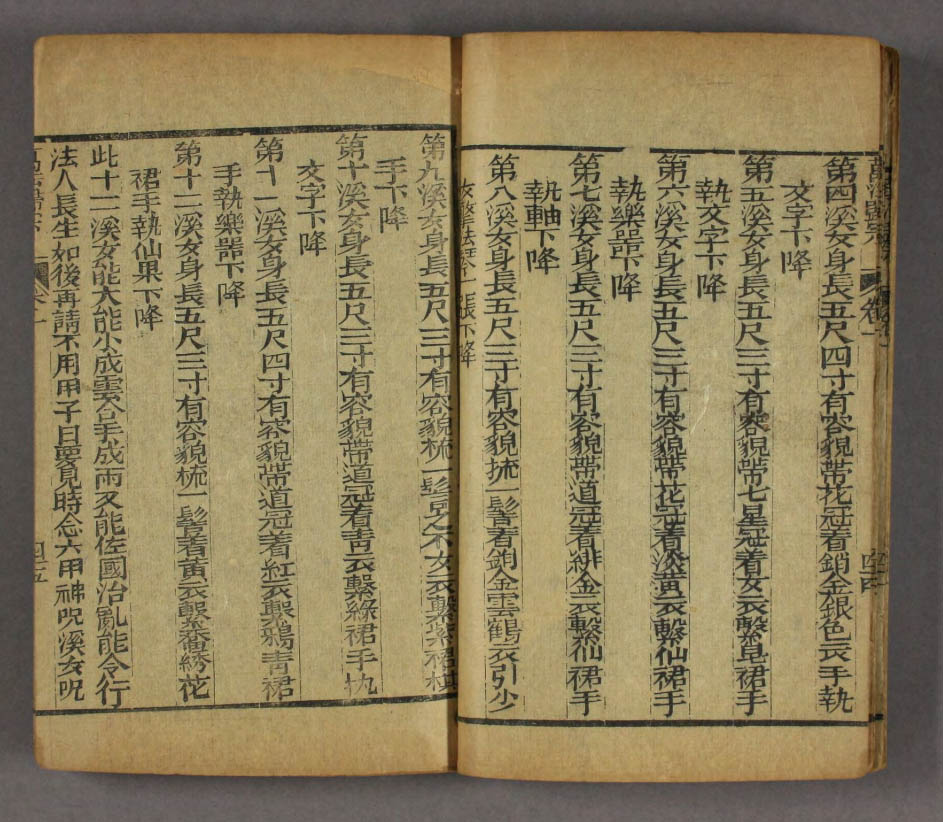 第四溪女身長五尺四寸有容貌帶花冠着銷金銀色衣手執
文字下降
第五溪女身長五尺三寸有容貌帶七星冠着女衣繫皂裙手
執文字下降
第六溪女身長五尺三寸有容貌帶花冠着淡黃衣繫仙裙手
執樂器下降
第七溪女身長五尺三寸有容貌帶道冠着緋金衣繫仙裙手
執軸下降
第八溪女身長五尺三寸有容貌梳一髻着銷金雲鶴衣引少
第九溪女身長五尺三寸有容貌梳一髻衣繫紫裙
手下降
第十溪女身長五尺三寸有容貌帶道冠着青衣繫綠裙手执
文字下降
第十一溪女身長五尺四寸有容貌帶道冠着紅衣繫鴉青裙
手執樂器下降
第十二溪女身長五尺三寸有容貌梳一髻着黃衣繫番綉花
裙手執仙果下降
此十二溪女能大能小成雲合手成雨又能佐國治亂能令行
法人長生如後再請不用甲子日要見時念六甲神呪溪女呪